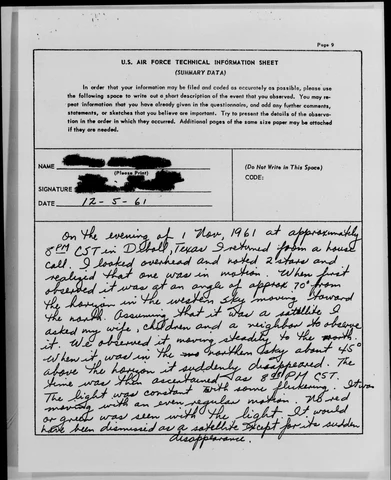 Page 9
U.S. AIR FORCE TECHNICAL INFORMATION SHEET
(SUMMARY DATA)
In order that your information may be filed and coded as accurately as possible, please use
the following space to write out a short description of the event that you observed. You may re-
peat information that you have already given in the questionnaire, and add any further comments,
statements, or sketches that you believe are important. Try to present the details of the observa-
tion in the order in which they occurred. Additional pages of the same size paper may be attached
if they are needed.
NAME
(Please Print)
SIGNATURE
DATE 12-5-61
(Do Not Write in This Space)
CODE:
On the evening of 1 Nov, 1961 at approximately
8 PM CST in Diboll, Texas I returned from a house
call. I looked overhead and noted 2 stars and
realized that one was in motion. When first
observed it was at an angle of approx 70° from
the horizon in the western sky moving toward
the north. Assuming that it was a satellite I
asked my wife, children and a neighbor to observe
it. We observed it moving steadily to the north.
When it was in the northern sky about 45°
above the horizon it suddenly disappeared. The
time was then ascertained as PM CST.
The light was constant with some It was
moving with an even regular motion. No red
or green was seen with the light. It would
have been dismissed as a satellite except for its sudden
disappearance.